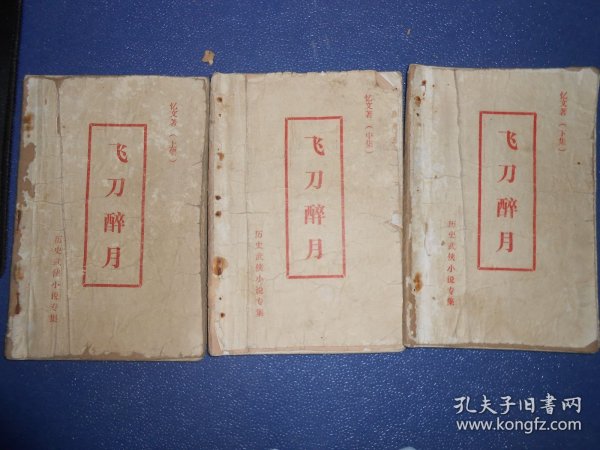 忆文著（上集）
飞刀醉月
历史武侠小说专集
忆文著（中集）
飞刀醉月
历史武侠小说专集
忆文著（下集）
飞刀醉月
历史武侠小说专集
孔夫子旧书网
www.kongfz.com